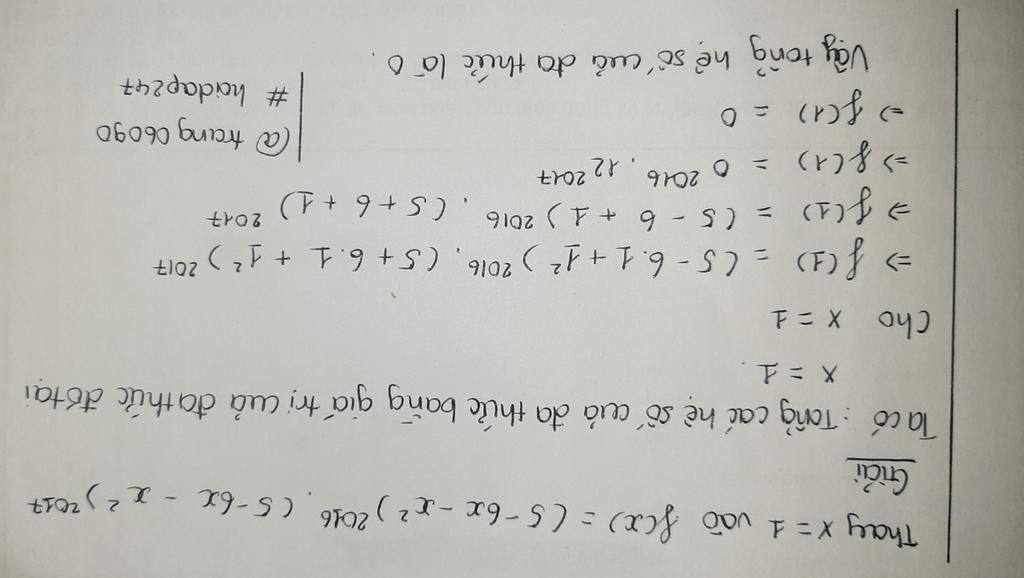 Thay x = 1 vào f(x) = (5 - 6x - x²)²⁰¹⁶ . (5 - 6x - x²)²⁰¹⁷
Giải
Ta có : Tổng các hệ số của đa thức bằng giá trị của đa thức đó tại
x = 1 .
Cho x = 1
=> f(1) = (5 - 6.1 + 1²)²⁰¹⁶ . (5 + 6.1 + 1²)²⁰¹⁷
=> f(1) = (5 - 6 + 1)²⁰¹⁶ . (5 + 6 + 1)²⁰¹⁷
=> f(1) = 0²⁰¹⁶ . 12²⁰¹⁷
=> f(1) = 0
Vậy tổng hệ số của đa thức là 0 .
@ trang 06090
# hadap247